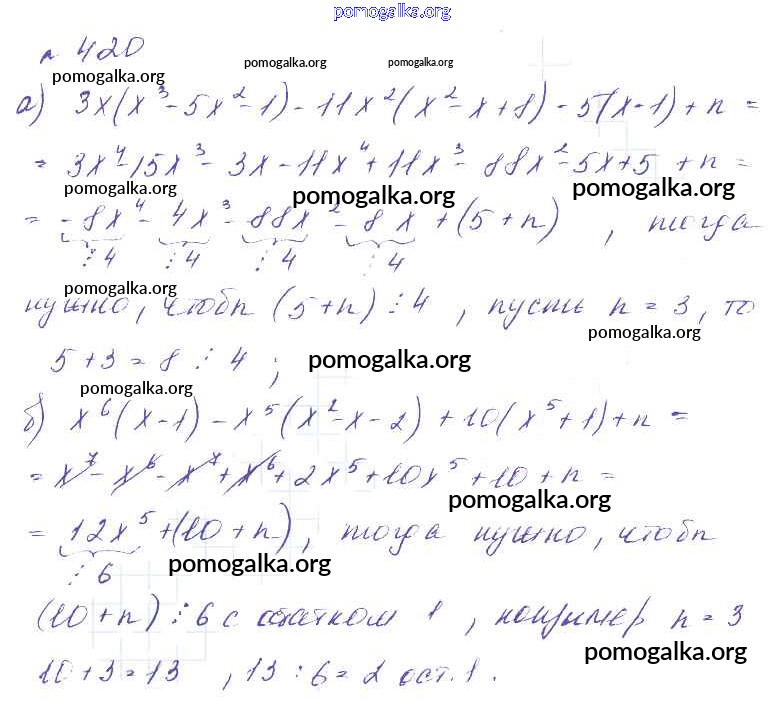 pomogalka.org
№ 420
pomogalka.org pomogalka.org pomogalka.org
а) 3x(x³-5x²-1)-11x²(x²-x+8)-5(x-1)+n=
= 3x⁴-15x³-3x-11x⁴+11x³-88x²-5x+5+n=
pomogalka.org pomogalka.org pomogalka.org
= -8x⁴-4x³-88x²-8x+(5+n), тогда
⋮4 ⋮4 ⋮4 ⋮4
pomogalka.org
нужно, чтобы (5+n)⋮4, пусть n=3, то
pomogalka.org
5+3=8⋮4;
pomogalka.org
pomogalka.org
б) x⁶(x-1)-x⁵(x²-x-2)+10(x⁵+1)+n=
= x⁷-x⁶-x⁷+x⁶+2x⁵+10x⁵+10+n=
pomogalka.org
= 12x⁵+(10+n), тогда нужно, чтобы
⋮6
pomogalka.org
(10+n)⋮6 с остатком 1, например n=3
pomogalka.org
10+3=13, 13:6=2 ост.1.